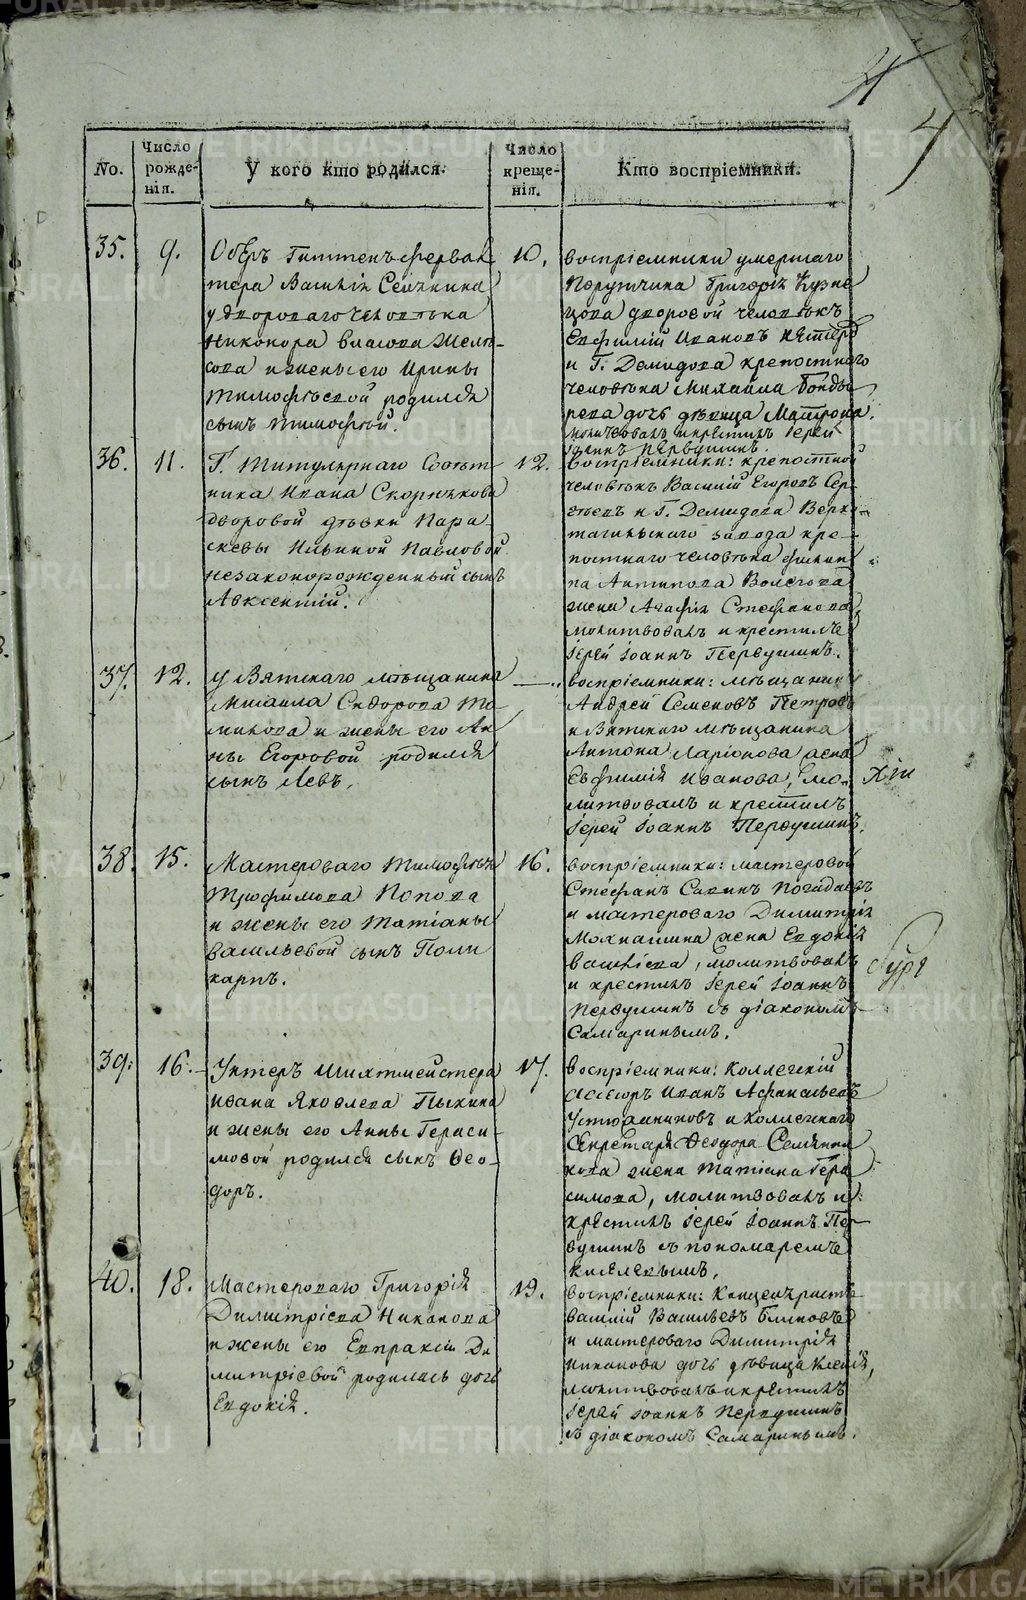 4
No.
Число рожде- нія.
У кого кто родился.
Число креще- нія.
Кто воспріемники.
35.
9.
Оберъ Гиттенъ ферваль
тера Василія Селянина
у двороваго человѣка
Никонора Власова
и жены его Ирины
Тимофѣевой родился
сынъ Тимофѣй.
10.
воспріемники умершаго
Порутчика Григорія Кузне
цова дворовой человѣкъ
Евфимій Ивановъ
и Г. Демидова крепостнаго
человѣка Михайла
дочь дѣвица Матрона.
молитвовалъ и крестилъ Іерей
Іоаннъ Первушинъ.
36.
11.
Г. Титулярнаго Совѣт
ника Ивана Скорнякова
дворовой дѣвки Пара-
скевы Ильиной Павловой
незаконорожденный сынъ
Авксентій.
12.
воспріемники: крепостной
человѣкъ Василій Егоровъ Сер-
гѣевъ и Г. Демидова
завода кре-
постнаго человѣка Филип
па Антипова
жена Агафія Стефанова,
молитвовалъ и крестилъ
Іерей Іоаннъ Первушинъ.
37.
12.
у Вятскаго мѣщанина
Михаила Сидорова
и жены его Ан
ны Егоровой родился
сынъ Левъ.
—
воспріемники: мѣщанинъ
Андрей Семеновъ Петровъ
и Вятскаго мѣщанина
Антона Ларіонова жена
Евфимія Иванова, мо-
литвовалъ и крестилъ
Іерей Іоаннъ Первушинъ.
38.
15.
Мастероваго Тимофѣя
Трофимова Попова
и жены его Татіаны
Васильевой сынъ Поли
карпъ.
16.
воспріемники: мастеровой
Стефанъ Савинъ
и мастероваго Димитрія
Мохнашина жена Евдокія
Васильева, молитвовалъ
и крестилъ Іерей Іоаннъ
Первушинъ съ діакономъ
Самаринымъ.
39.
16.
Унтеръ Шихтмейстера
Ивана Яковлева Пыхина
и жены его Анны Гераси-
мовой родился сынъ Ѳео-
доръ.
17.
воспріемники: Коллежскій
Асесоръ Иванъ Афанасьевъ
Устюжаниновъ и Колежскаго
Секретаря Ѳеодора Селянни
кова жена Татіана Гера
симова, молитвовалъ и
крестилъ Іерей Іоаннъ Пер
вушинъ съ пономаремъ
Киселевымъ.
40.
18.
Мастероваго Григорія
Димитріева Никанова
и жены его Евпраксіи Ди
митріевой родилась дочь
Евдокія.
19.
воспріемники: Канцеляристъ
Василій Васильевъ Блиновъ
и мастероваго Димитрія
Никанова дочь дѣвица Ксенія,
молитвовалъ и крестилъ
Іерей Іоаннъ Первушинъ
съ діакономъ Самаринымъ.
METRIKI.GASO-URAL.RU